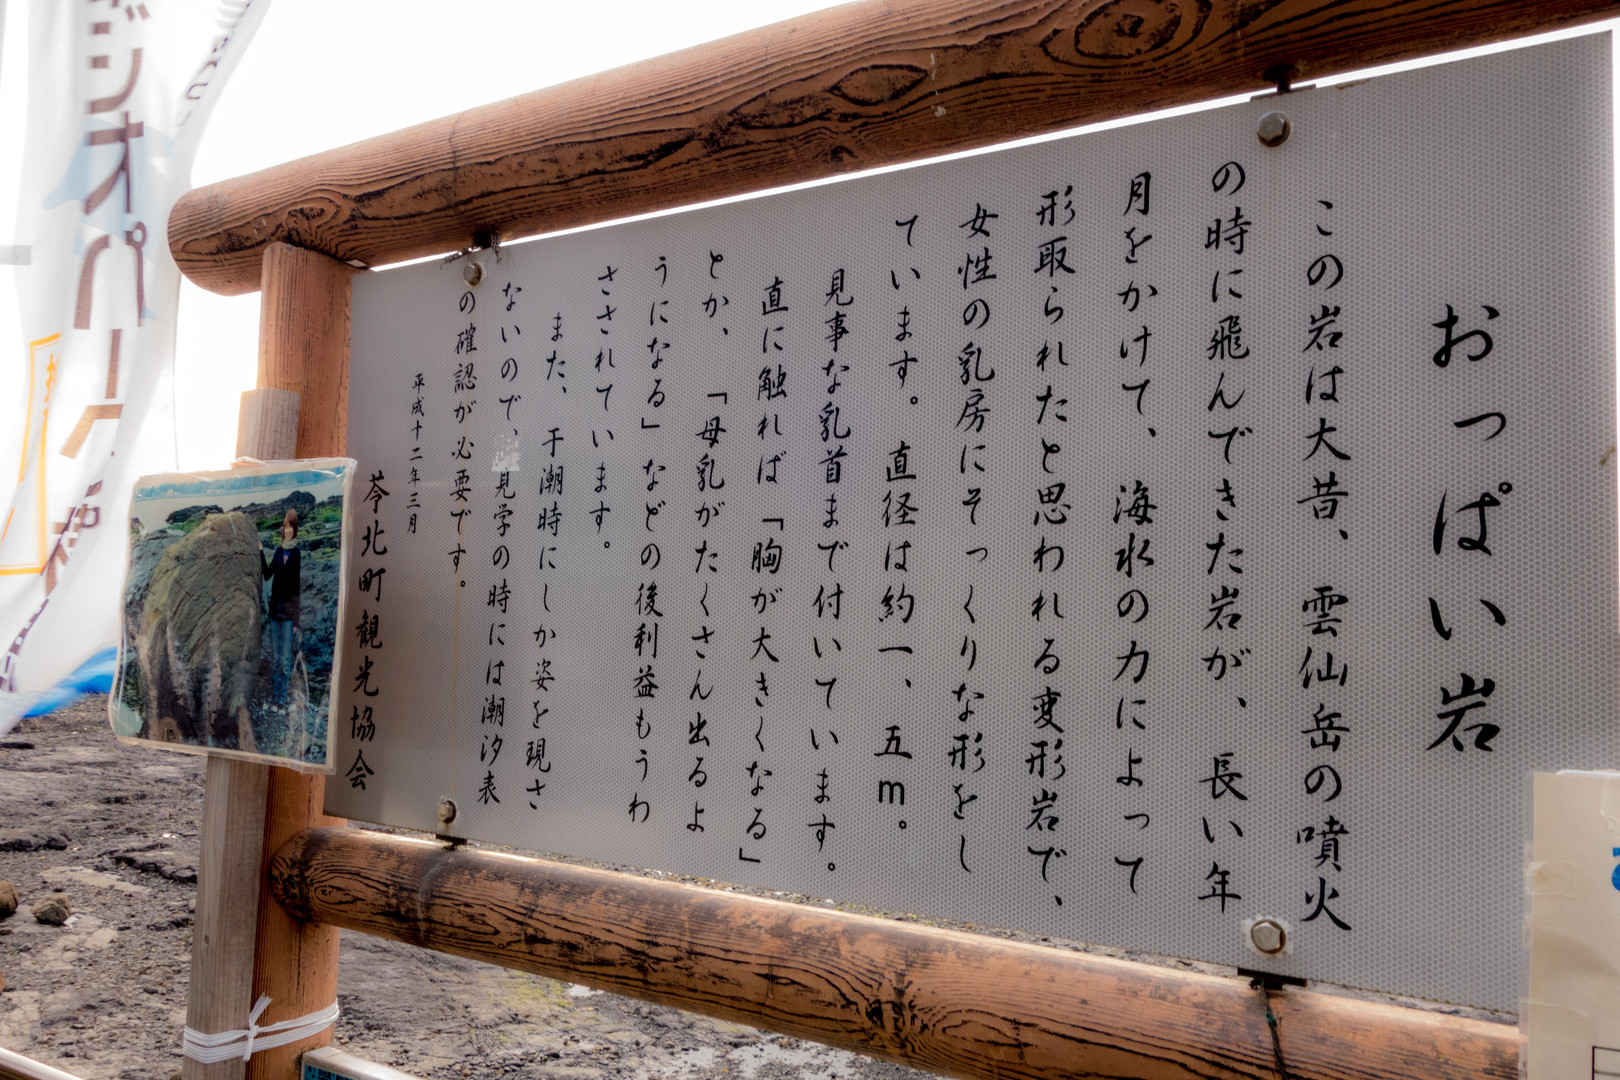 おっぱい岩
この岩は大昔、雲仙岳の噴火
の時に飛んできた岩が、長い年
月をかけて、海水の力によって
形取られたと思われる変形岩で、
女性の乳房にそっくりな形をし
ています。直径は約一、五m。
見事な乳首まで付いています。
直に触れば「胸が大きくなる」
とか、「母乳がたくさん出るよ
うになる」などの後利益もうわ
さされています。
また、干潮時にしか姿を現さ
ないので、見学の時には潮汐表
の確認が必要です。
平成十二年三月
苓北町観光協会
ジオパーク